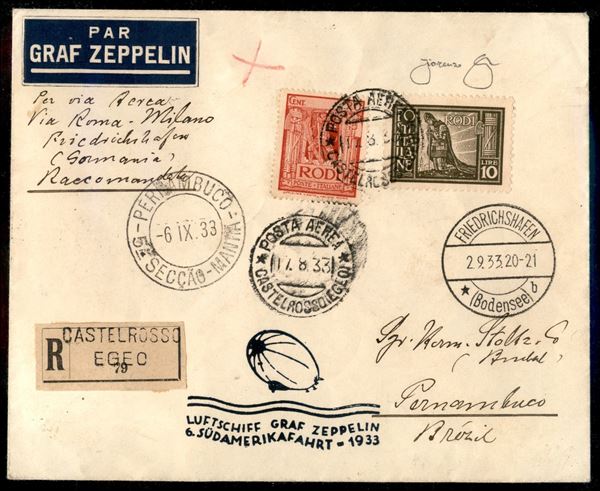 PAR
GRAF ZEPPELIN
Per via Aerea
Via Roma-Milano
Friedrichshafen
(Germania)
Raccomandata
PERNAMBUCO
-6 IX. 33
5ª SECÇÃO-MANHÃ
CENT.
RODI
POSTE ITALIANE
POSTA AEREA
RODI
LIRE
10
POSTA AEREA
17.8.33
CASTELROSSO (EGEO)
FRIEDRICHSHAFEN
2.9.33.20-21
(Bodensee) b
R
CASTELROSSO
EGEO
79
LUFTSCHIFF GRAF ZEPPELIN
6. SÜDAMERIKAFAHRT - 1933
Herm. Stoltz
Pernambuco
Brézil